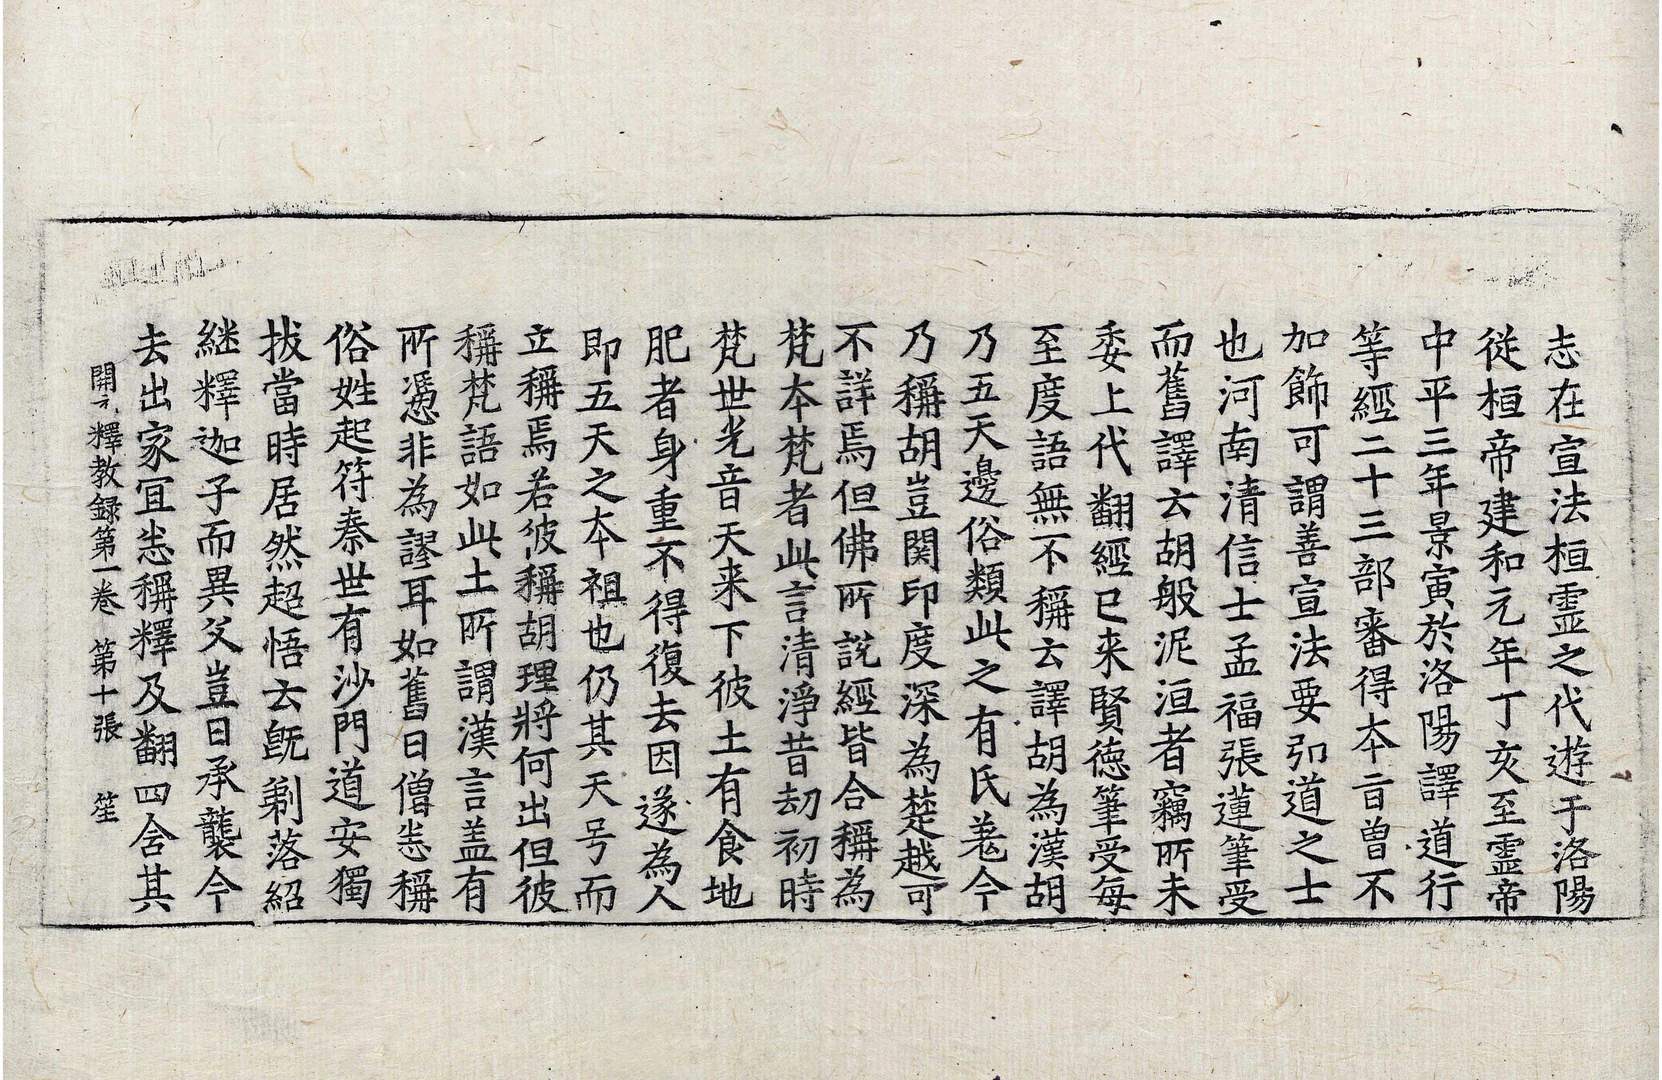 志在宣法桓霊之代遊于洛陽
従桓帝建和元年丁亥至霊帝
中平三年景寅於洛陽譯道行
等經二十三部審得本旨曽不
加飾可謂善宣法要弘道之士
也河南清信士孟福張蓮筆受
而舊譯云胡般泥洹者竊所未
委上代翻經已来賢德筆受每
至度語無不稱云譯胡為漢胡
乃五天邊俗類此之有氐羌今
乃稱胡豈関印度深為楚越可
不詳焉但佛所說經皆合稱為
梵本梵者此言清淨昔劫初時
梵世光音天来下彼土有食地
肥者身重不得復去因遂為人
即五天之本祖也仍其天号而
立稱焉若彼稱胡理將何出但彼
稱梵語如此土所謂漢言盖有
所憑非為謬耳如舊日僧恙稱
俗姓起符秦世有沙門道安獨
拔當時居然超悟云既剃落紹
継釋迦子而異父豈曰承襲今
去出家冝恙稱釋及翻四含其
開元釋教録第一卷　第十張　笙